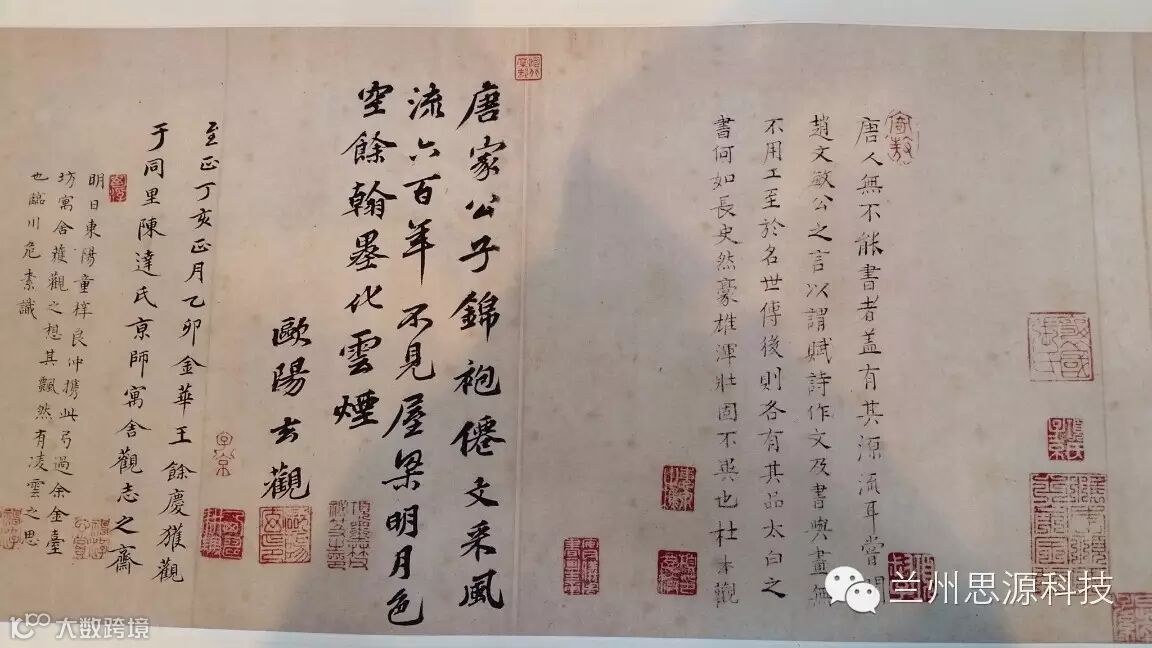 唐人無不能書者盖有其源流耳嘗聞
趙文敏公之言以謂賦詩作文及書與畫無
不用工至於名世傳後則各有其品太白之
書何如長史然豪雄渾壯固不異也杜本觀
唐家公子錦袍僊文采風
流六百年不見屋梁明月色
空餘翰墨化雲煙
歐陽玄觀
至正丁亥正月乙卯金華王餘慶獲觀
于同里陳達氏京師寓舍觀志之齋
明日東陽童梓良仲携此号過余金臺
坊寓舍獲觀之想其飄然有凌雲之思
也臨川危素識
子京
兰州思源科技
大数跨境